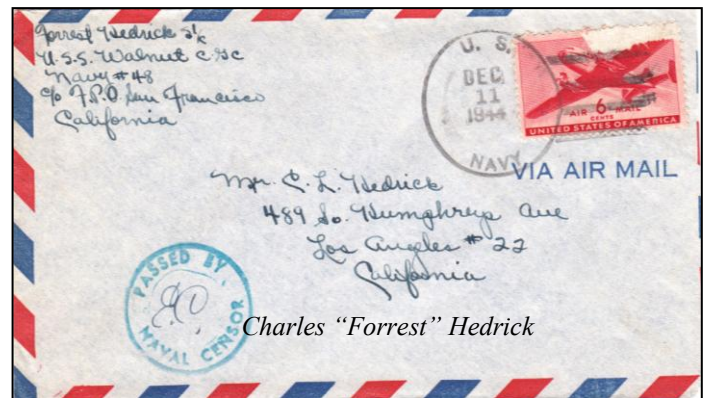 Forrest Hedrick S1/c
U.S.S. Walnut CGC
Navy #48
c/o F.P.O. San Francisco
California
U. S.
DEC
11
1944
NAVY
AIR 6 MAIL
CENTS
UNITED STATES OF AMERICA
VIA AIR MAIL
Mr. C. L. Hedrick
489 So. Humphreys Ave
Los Angeles #22
California
PASSED BY
NAVAL CENSOR
Charles “Forrest” Hedrick